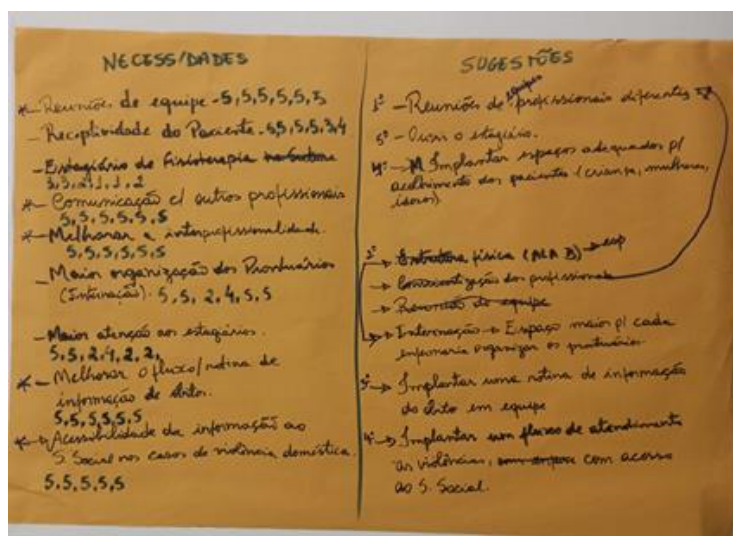 NECESSIDADES
* - Reuniões de equipe - 5,5,5,5,5,5
- Receptividade do Paciente - 5,5,5,5,3,4
- Estagiário de Fisioterapia
5,5,2,1,1,2
* - Comunicação c/ outros profissionais
5,5,5,5,5,5
* - Melhorar a interprofissionalidade.
5,5,5,5,5,5
- Maior organização dos Prontuários
(Internação). 5,5,2,4,5,5
- Maior atenção aos estagiários.
5,5,2,4,2,2,
* - Melhorar o fluxo/rotina de
informação de óbitos.
5,5,5,5,5,5
* → Acessibilidade da informação ao
S. Social nos casos de violência doméstica.
5,5,5,5,5
SUGESTÕES
1º - Reuniões de equipes profissionais diferentes
5º - Ouvir o estagiário.
4º → Implantar espaços adequados p/
acolhimento dos pacientes (criança, mulheres,
idosos)
2º → Estrutura física (ALA B) → esp
→ Conscientização dos profissionais
→ Reunião de equipe
→ Internação → Espaço maior p/ cada
enfermaria organizar os prontuários.
3º → Implantar uma rotina de informação
do óbito em equipe
4º → Implantar um fluxo de atendimento
as violências, com acesso
ao S. Social.